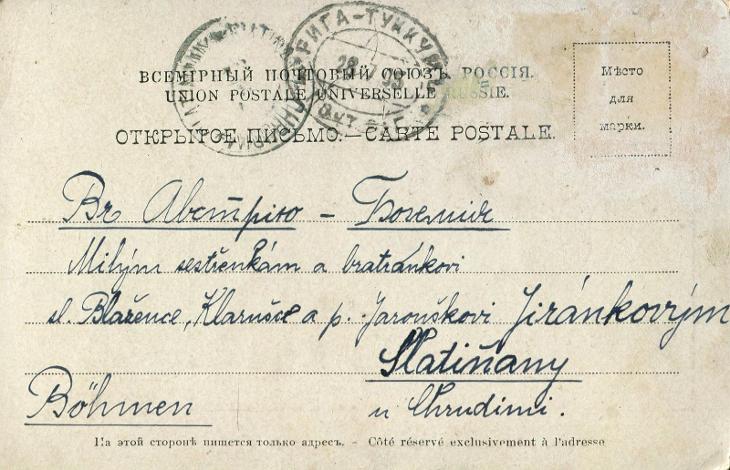 РИГА-ТУККУМ
ВСЕМІРНЫЙ ПОЧТОВЫЙ СОЮЗЪ. РОССІЯ.
UNION POSTALE UNIVERSELLE. RUSSIE.
ОТКРЫТОЕ ПИСЬМО.—CARTE POSTALE.
Мѣсто
для
марки.
Въ Австрію – Богемія
Milým sestřenkám a bratránkovi
sl. Blažence, Klarušce a p. Jarouškovi Jiránkovým
Slatiňany
Böhmen
u Chrudimi.
На этой сторонѣ пишется только адресъ. - Côté réservé exclusivement à l'adresse